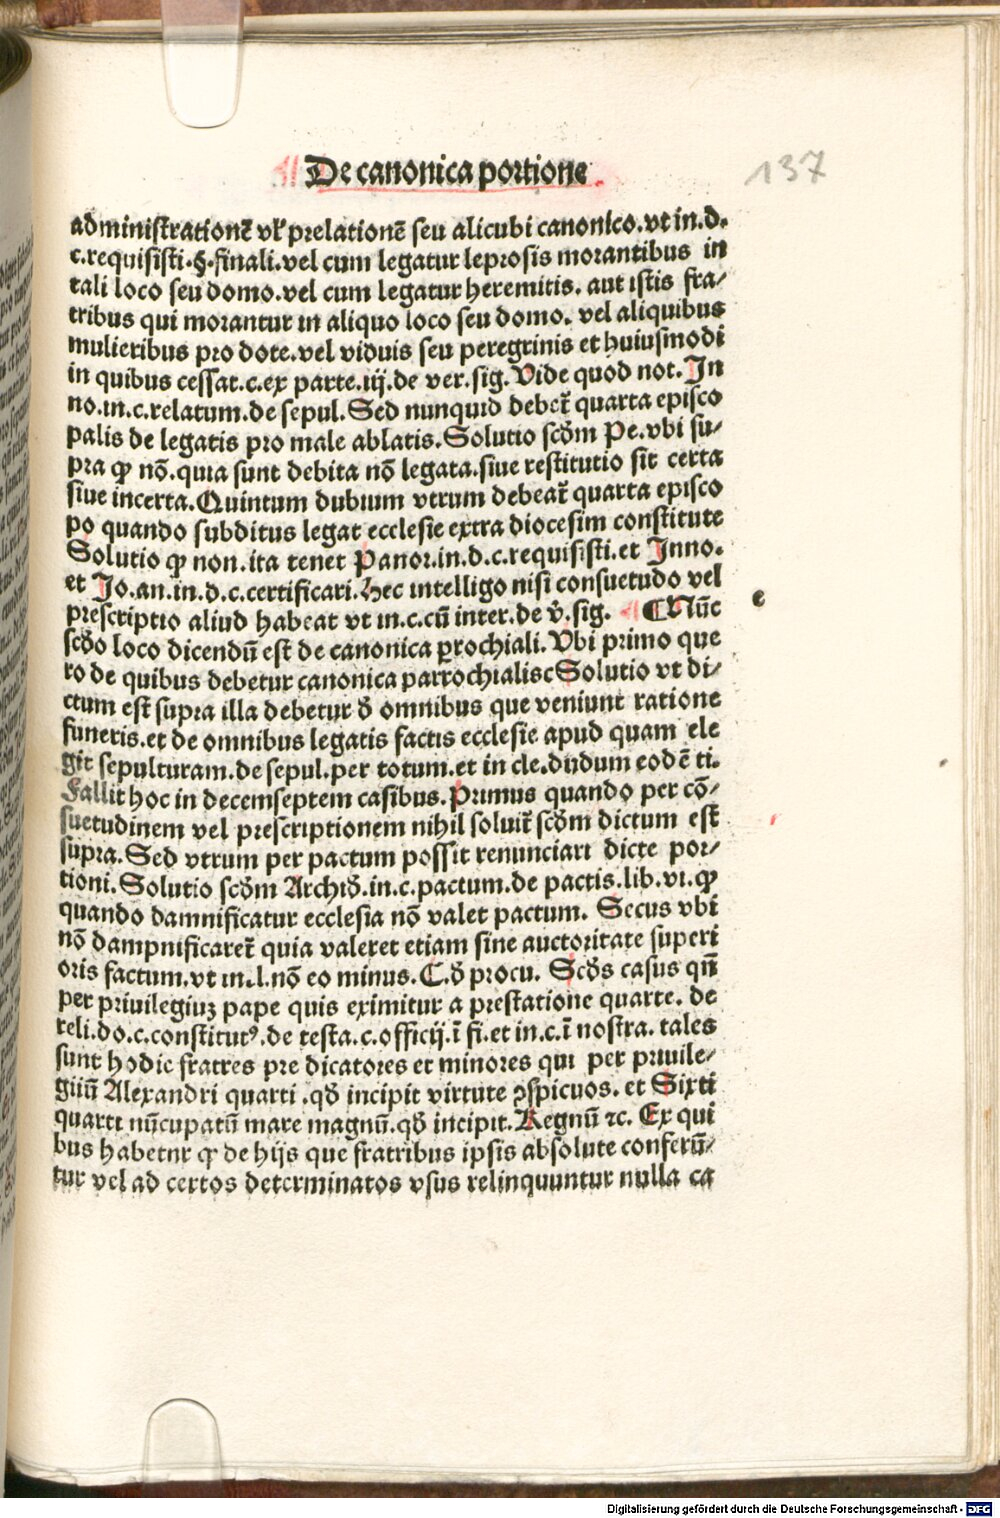 De canonica portione
137
administrationē vł prelationē seu alicubi canonico.vt in.d.
c.requisisti.§.finali.vel cum legatur leprosis morantibus in
tali loco seu domo.vel cum legatur heremitis. aut istis fra⸗
tribus qui morantur in aliquo loco seu domo. vel aliquibus
mulieribus pro dote.vel viduis seu peregrinis et huiusmodi
in quibus cessat.c.ex parte.iij.de ver.sig. Vide quod not. In
no.in.c.relatum.de sepul. Sed nunquid debet̄ quarta episco
palis de legatis pro male ablatis. Solutio scđm Pe.vbi su⸗
pra ꝙ nō.quia sunt debita nō legata.siue restitutio sit certa
siue incerta. Quintum dubium vtrum debeat̄ quarta episco
po quando subditus legat ecclesie extra diocesim constitute
Solutio ꝙ non.ita tenet Panor.in.d.c.requisisti.et Inno.
et Jo.an.in.d.c.certificari. Hec intelligo nisi consuetudo vel
prescriptio aliud habeat vt in.c.cū inter.de v̄.sig. ¶ Nūc
e
scđo loco dicendū est de canonica ꝑrochiali. Vbi primo que
ro de quibus debetur canonica parrochialisc Solutio vt di⸗
ctum est supra illa debetur đ omnibus que veniunt ratione
funeris.et de omnibus legatis factis ecclesie apud quam ele
git sepulturam.de sepul.per totum.et in cle.dudum eodē ti.
Fallit hoc in decemseptem casibus. Primus quando per cō⸗
suetudinem vel prescriptionem nihil soluit̄ scđm dictum est
supra. Sed vtrum per pactum possit renunciari dicte por⸗
tioni. Solutio scđm Archiđ.in.c.pactum.de pactis.lib.vi.ꝙ
quando damnificatur ecclesia nō valet pactum. Secus vbi
nō dampnificaret̄ quia valeret etiam sine auctoritate superi
oris factum.vt in.l.nō eo minus. C.đ procu. Scđs casus qn̄
per priuilegiuꝫ pape quis eximitur a prestatione quarte. de
reli.do.c.constitutꝰ.de testa.c.officij.ī fi.et in.c.ī nostra. tales
sunt hodie fratres pre dicatores et minores qui per priuile⸗
giiū Alexandri quarti .qđ incipit virtute ꝯspicuos. et Sixti
quarti nūcupatū mare magnū.qđ incipit. Regnū ⁊c. Ex qui
bus habetur ꝙ de hijs que fratribus ipsis absolute conferū⸗
tur vel ad certos determinatos vsus relinquuntur nulla ca
Digitalisierung gefördert durch die Deutsche Forschungsgemeinschaft - DFG